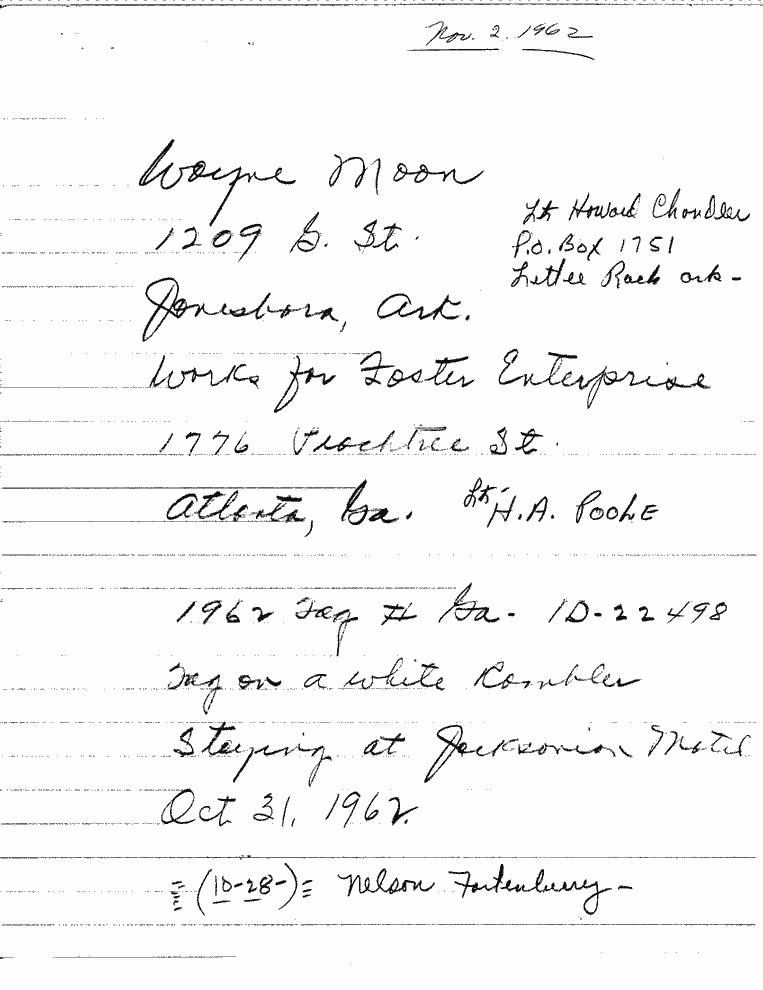 Nov. 2. 1962
Wayne Moon
1209 G. St.
Jonesboro, Ark.
Lt Howard Chandler
P.O. Box 1751
Little Rock ark -
Works for Foster Enterprise
1776 Peachtree St.
Atlanta, Ga.
Lt. H.A. POOLE
1962 Tag # Ga - 1D-22498
Tag on a white Rambler
Staying at Jacksonian Motel
Oct 31, 1962
(10-28-) Nelson Fortenberry -